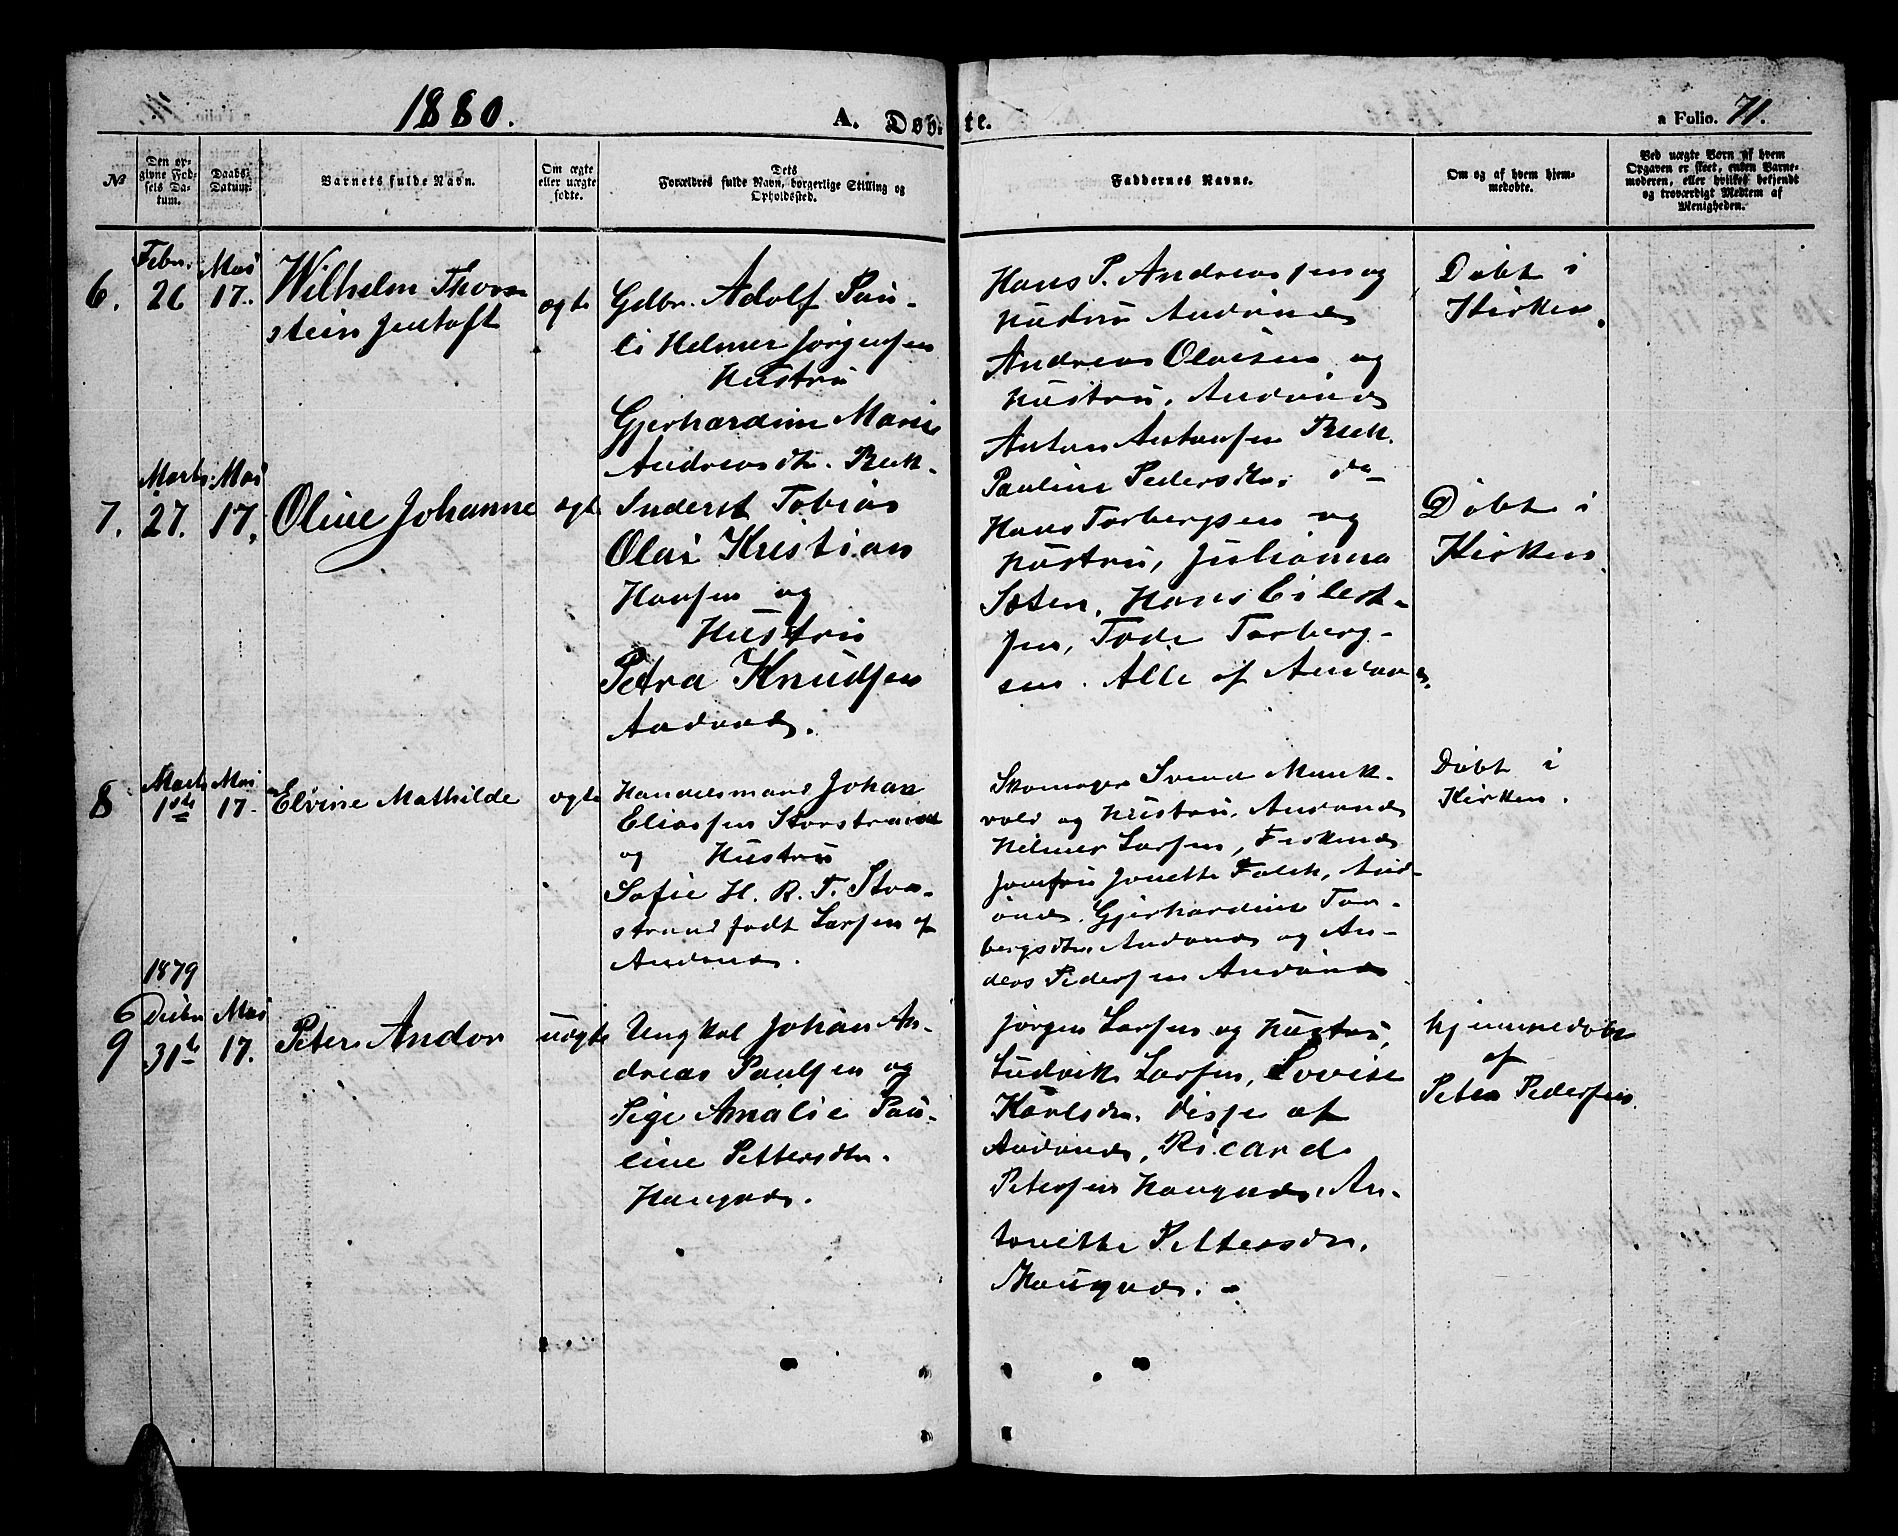 1880.
A. Døbte.
a Folio. 71.
№
Den opgivne Fødsels Datum.
Daabs-Datum.
Barnets fulde Navn.
Om ægte eller uægte fødte.
Dets Forældres fulde Navn, borgerlige Stilling og Opholdssted.
Faddernes Navne.
Om og af hvem hjemmedøbte.
Ved uægte Børn af hvem Opgaven er skeet, enten Barnemoderen, eller hvilket bekjendt og troværdigt Medlem af Menigheden.
6.
Febr. 26
Mai 17.
Wilhelm Thor-
stein Jentoft
ægte
Gdbr. Adolf Pau-
li Helmer Jørgensen
Hustru
Gjerhardine Marie
Andreasdtr. Buk-
Hans P. Andreassen og
Hustru Andønes
Andreas Olaisen og
Hustru, Andønes
Anton Antonsen Buk.
Pauline Pedersdtr. do
Døbt i
Kirken.
7.
Marts 27.
Mai 17.
Oline Johanne
ægte
Inderst Tobias
Olai Kristian
Hansen og
Hustru
Petra Knudsen
Andønes.
Hans Torbergsen og
Hustru, Julianna
Hans Eilert-
sen, Tode Torberg-
sen. Alle af Andønes.
Døbt i
Kirken.
8
Marts 1ste
Mai 17.
Elvine Mathilde
ægte
Handelsmand Johan
Eliassen Storstrand
og Hustru
Sofie H. R. T. Stor-
strand født Larsen af
Andønes.
Skomager Svend Munk-
vold og Hustru, Andønes
Hilmer Larsen, Fiskenes
Jomfru Jonette Falck, And-
ønes. Gjerhardine Tor-
bergsdtr Andønes og An-
ders Pedersen Andønes
Døbt i
Kirken.
9
1879
6 Decbr
31te
Mai 17.
Peter Andor
uægte
Ungkal Johan An-
dreas Paulsen og
Pige Amalie Pau-
line Pettersdtr.
Haugnes.
Jørgen Larsen og Hustru,
Ludvik Larsen, Lovise
Karlsdtr. disse af
Andønes, Ricard
Petersen Haugnes, An-
tonette Pettersdtr.
Haugnes.
hjemmedøbt
af
Peter Pedersen.